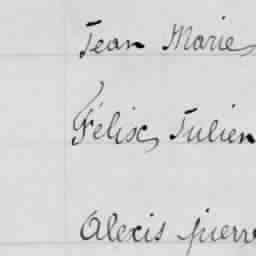 Jean Marie
Félix, Julien
Alexis pierre